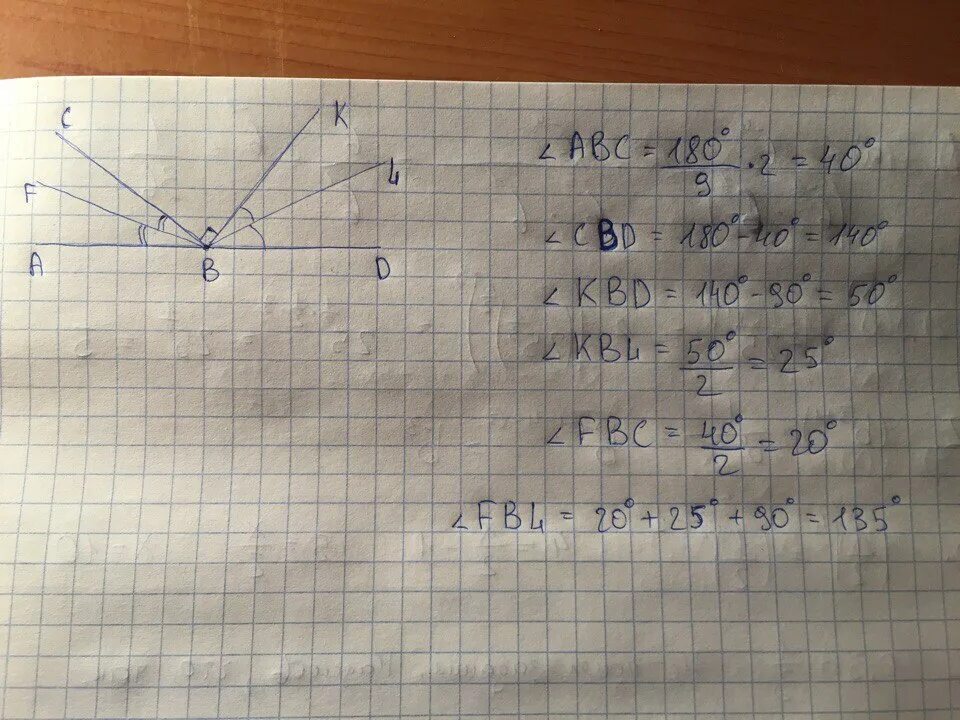 C
K
F
4
A
B
D
∠ABC = 180°/9 · 2 = 40°
∠CBD = 180° - 40° = 140°
∠KBD = 140° - 90° = 50°
∠KB4 = 50°/2 = 25°
∠FBC = 40°/2 = 20°
∠FB4 = 20° + 25° + 90° = 135°